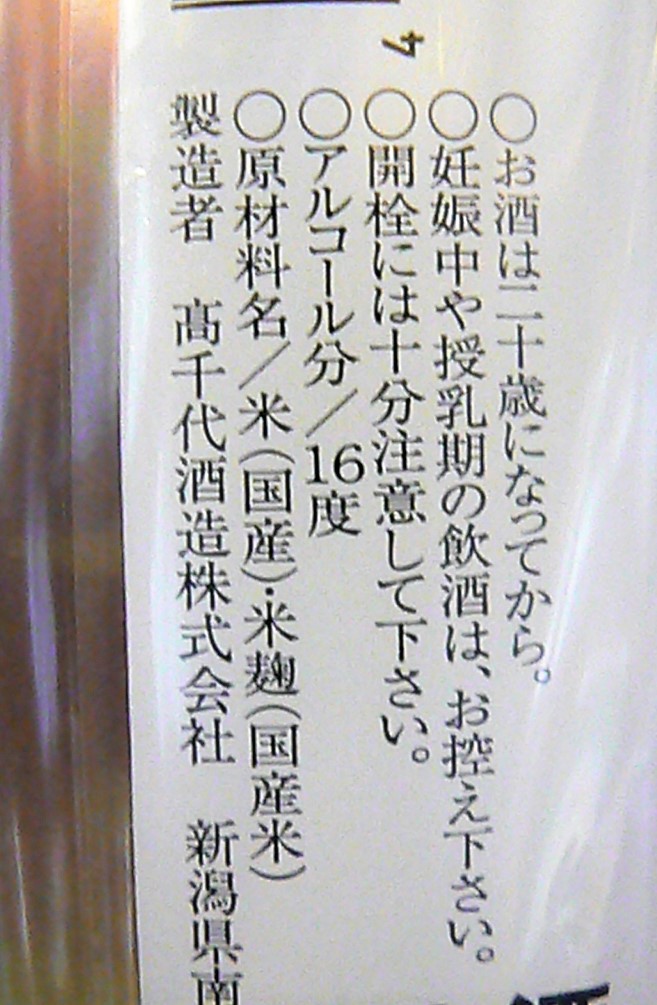 ○お酒は二十歳になってから。
○妊娠中や授乳期の飲酒は、お控え下さい。
○開栓には十分注意して下さい。
○アルコール分／16度
○原材料名／米(国産)・米麹(国産米)
製造者　髙千代酒造株式会社　新潟県南